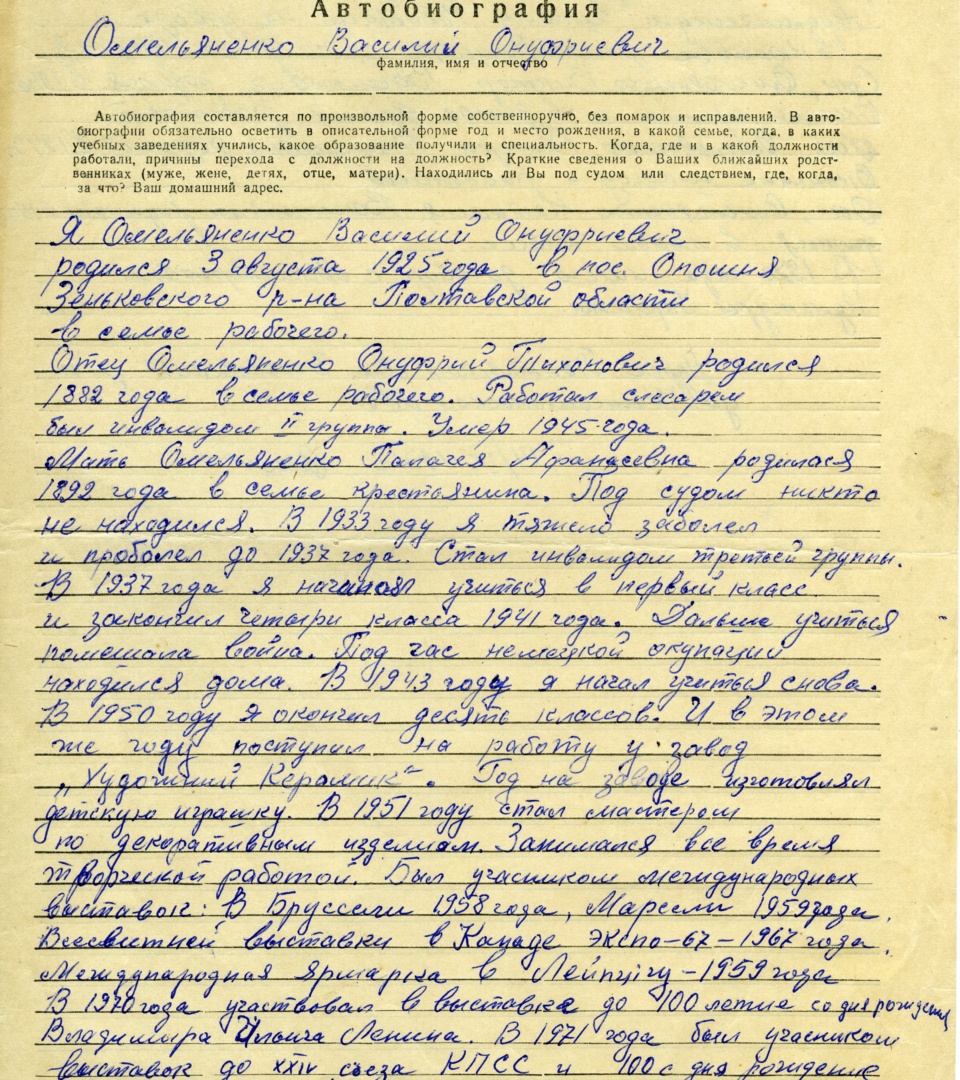 Автобиография
Омельяненко Василий Онуфриевич
фамилия, имя и отчество
Автобиография составляется по произвольной форме собственноручно, без помарок и исправлений. В авто-
биографии обязательно осветить в описательной форме год и место рождения, в какой семье, когда, в каких
учебных заведениях учились, какое образование получили и специальность. Когда, где и в какой должности
работали, причины перехода с должности на должность? Краткие сведения о Ваших ближайших родст-
венниках (муже, жене, детях, отце, матери). Находились ли Вы под судом или следствием, где, когда,
за что? Ваш домашний адрес.
Я Омельяненко Василий Онуфриевич
родился 3 августа 1925 года в пос. Опошня
Зеньковского р-на Полтавской области
в семье рабочего.
Отец Омельяненко Онуфрий Тихонович родился
1882 года в семье рабочего. Работал слесарем
был инвалидом II группы. Умер 1945 года.
Мать Омельяненко Палагея Афанасевна родилася
1892 года в семье крестьянина. Под судом никто
не находился. В 1933 году я тяжело заболел
и проболел до 1937 года. Стал инвалидом третьей группы.
В 1937 года я начинал учиться в первый класс
и закончил четыри класса 1941 года. Дальше учиться
помешала война. Под час немецкой окупации
находился дома. В 1943 году я начал учиться снова.
В 1950 году я окончил десять классов. И в этом
же году поступил на работу у завод
„Художний Керамик". Год на заводе изготовлял
детскую играшку. В 1951 году стал мастером
по декоративным изделиам. Занимался все время
творческой работой. Был учасником международных
выставок: В Брусселi 1958 года, Марсели 1959 года,
Всесвитней выставки в Канаде Экспо-67 – 1967 года,
Международная ярмарка в Лейпцiгу – 1959 года
В 1970 года участвовал в выставке до 100 летие со дня рождения
Владимира Ильича Ленина. В 1971 года был учасником
выставок до XXIV съезда КПСС и 100 с дня рождение